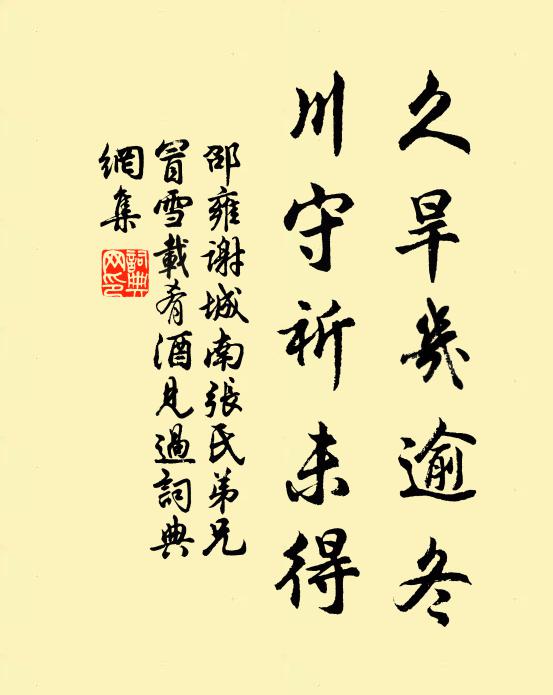 久旱幾逾冬
川守祈未得
邵雍謝城南張氏弟兄
冒雪載肴酒見過詞典
網集
詞典
网印